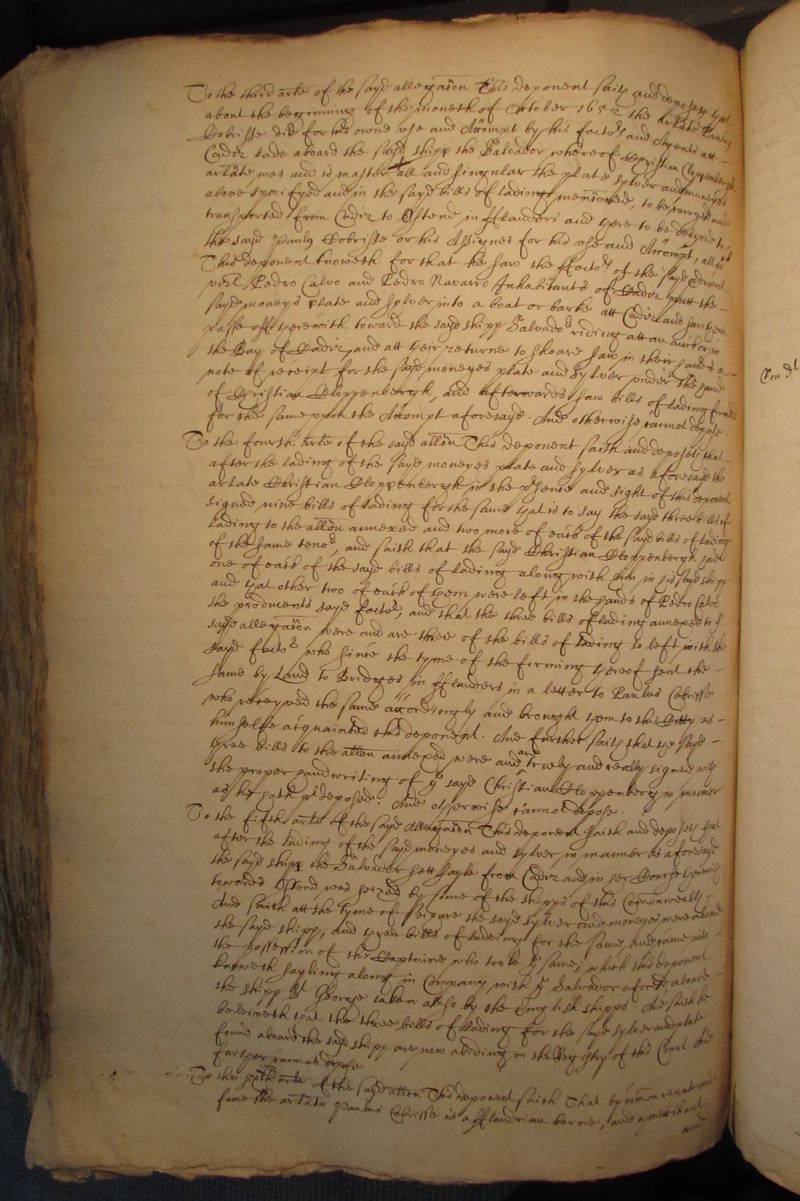 To the third arle of the sayd allegation This deponent saith and deposeth that
about the beginning of the moneth of October 1652 the arlate Paulus
Cobrisse did for his owne use and Accompt by his factors and Agents att
Cadiz lade aboard the sayd shipp the Salvador whereof Christian Cloppenbergh
arlate was and is master all and singular the plate sylver and moneyes
above specifyed and in the sayd bills of lading mencioned, to be carryed and
transported from Cadiz to Ostend in fflanders and there to be delivered to
the sayd Paulus Cobrisse or his Assignes for his use and Accompt, all wch
This deponent knoweth for that he saw the ffactors of the sayd
vizt Pedro Calvo and Pedro Navarro Inhabitants of Cadiz putt the
sayd moneys plate and sylver into a boat or barke att Cadiz and saw them
passe off therewith toward the sayd shipp Salvador riding att an anchor in
the Bay of Cadiz, and att their returne to shoare saw in their hands a
note of receipt for the sayd moneyes plate and sylver under the hand
of Christian Cloppenbergh, and afterwards saw bills of lading firmed
for the same upon the Accompt aforesayd. And otherwise cannot depose
To the fourth arle of the sayd allon This deponent saith and deposeth that
after the lading of the sayd moneyes plate and sylver as aforesayd the
arlate Christian Cloppenbergh in the presence and sight of this deponent
signed nine bills of lading for the same that is to say the sayd three bills of
lading to the allon annexed and two more of each of the sayd bills of lading
of the same tenor, and saith that the sayd Christian Cloppenbergh had
one of each of the sayd bills of lading along with him in his sayd shipp
and that other two of each of them were left in the hands of Pedro Calvo
the producents sayd factor, and that the three bills of lading annexed to ye
sayd allegation were and are three of the bills of lading so left with the
sayd factor who since the tyme of the firming thereof sent the
same by Land to Bridges in fflanders in a letter to Paulus Cobrisse
who receyved the same accordingly and brought them to this Citty as
himselfe acquainted this deponent. And further saith that the sayd
three bills to the allon annexed were and are truely and really signed with
the proper handwriting of ye sayd Christian Cloppenbergh in manner
as hee hath predeposed. And otherwise cannot depose.
To the fifth arle of the sayd Allegation This deponent saith and deposeth that
after the lading of the sayd moneyes and sylver in manner as aforesayd
the sayd shipp the Salvador sett sayle from Cadiz and in her Course
towards Ostend was seized by some of the shipps of this Commonwealth
And saith att the tyme of seizure the sayd sylver and moneyes were aboard
the sayd shipp, and three bills of ladeing for the same, and came into
the possession of the Captaine who tooke ye same, which this deponent
knoweth sayling along in Company with ye Salvador aforesd aboard
the shipp St George taken alsoe by the English shipps. And saith he
beleiveth that the three bills of lading for the sayd sylver and plate
found aboard the sayd shipp are now abiding in the Registry of this Court And
further cannot depose
To the sixth arle of the sayd allon This deponent saith That by comon repute and
fame the arlate Paulus Cobrisse is a fflandrian borne, and a merchant
and